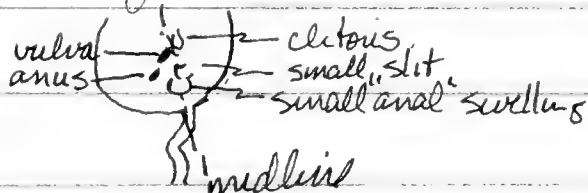 vulva clitoris
anus small „slit
small „anal" swelling
midline